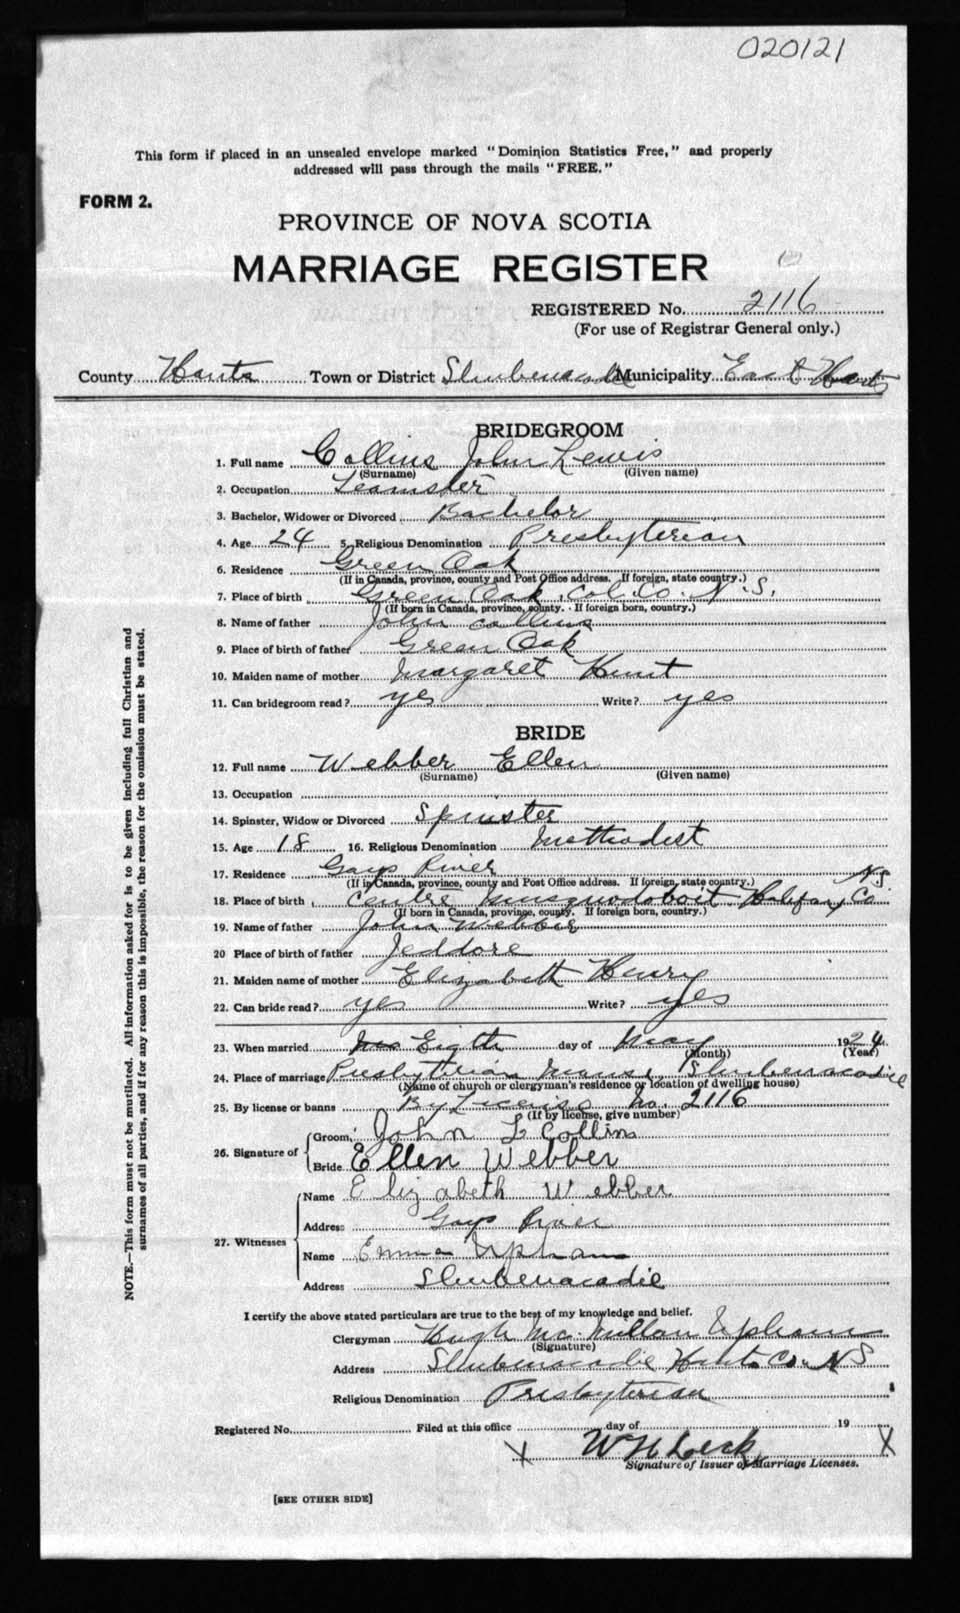 020121
This form if placed in an unsealed envelope marked "Dominion Statistics Free," and properly
addressed will pass through the mails "FREE."
FORM 2.
PROVINCE OF NOVA SCOTIA
MARRIAGE REGISTER
REGISTERED No. 2116
(For use of Registrar General only.)
County Hants Town or District Shubenacadie Municipality East Hants
BRIDEGROOM
1. Full name Collins John Lewis
(Surname) (Given name)
2. Occupation Teamster
3. Bachelor, Widower or Divorced Bachelor
4. Age 24 5. Religious Denomination Presbyterian
6. Residence Green Oak
(If in Canada, province, county and Post Office address. If foreign, state country.)
7. Place of birth Green Oak Col. Co. N. S.
(If born in Canada, province, county. If foreign born, country.)
8. Name of father John Collins
9. Place of birth of father Green Oak
10. Maiden name of mother Margaret Hunt
11. Can bridegroom read? yes Write? yes
BRIDE
12. Full name Webber Ellen
(Surname) (Given name)
13. Occupation
14. Spinster, Widow or Divorced Spinster
15. Age 18 16. Religious Denomination Methodist
17. Residence Gays River
(If in Canada, province, county and Post Office address. If foreign, state country.)
18. Place of birth Centre Musquodoboit Halifax Co N.S.
(If born in Canada, province, county. If foreign born, country.)
19. Name of father John Webber
20 Place of birth of father Jeddore
21. Maiden name of mother Elizabeth Henry
22. Can bride read? yes Write? yes
23. When married Eigth day of May 1924.
(Month) (Year)
24. Place of marriage Presbyterian Manse Shubenacadie
(Name of church or clergyman's residence or location of dwelling house)
25. By license or banns By License No. 2116
(If by license, give number)
26. Signature of Groom, John L Collins
Bride Ellen Webber
27. Witnesses Name Elizabeth Webber
Address Gays River
Name Emma Upham
Address Shubenacadie
I certify the above stated particulars are true to the best of my knowledge and belief.
Clergyman Hugh McMillan Upham
(Signature)
Address Shubenacadie Hants Co. N S
Religious Denomination Presbyterian
Registered No. Filed at this office day of 19
X W H X
Signature of Issuer of Marriage Licenses.
[SEE OTHER SIDE]
NOTE.—This form must not be mutilated. All information asked for is to be given including full Christian and
surnames of all parties, and if for any reason this is impossible, the reason for the omission must be stated.